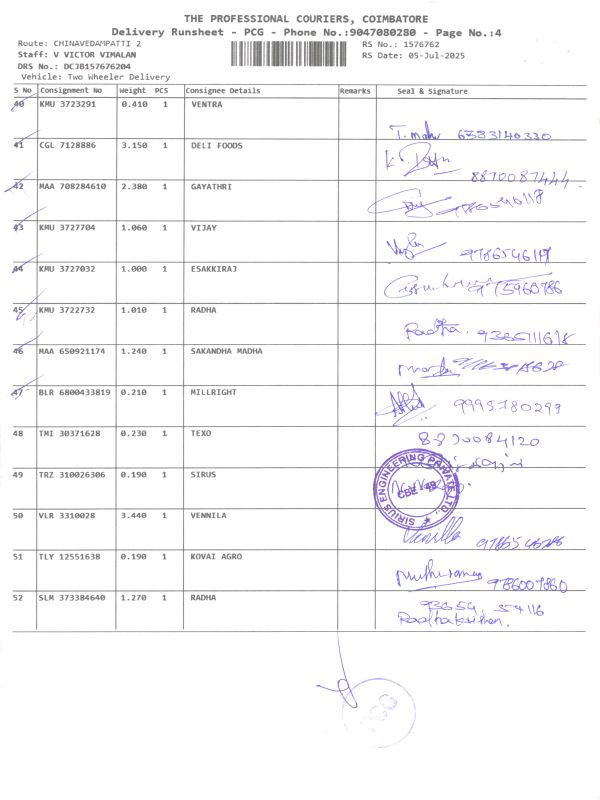 THE PROFESSIONAL COURIERS, COIMBATORE
Delivery Runsheet - PCG - Phone No.:9047080280 - Page No.:4
Route: CHINAVEDAMPATTI 2
RS No.: 1576762
Staff: V VICTOR VIMALAN
RS Date: 05-Jul-2025
DRS No.: DCJB157676204
Vehicle: Two Wheeler Delivery
S No Consignment No Weight PCS Consignee Details Remarks Seal & Signature
40 KMU 3723291 0.410 1 VENTRA
6383140330
41 CGL 7128886 3.150 1 DELI FOODS
8870087444
42 MAA 708284610 2.380 1 GAYATHRI
43 KMU 3727704 1.060 1 VIJAY
44 KMU 3727032 1.000 1 ESAKKIRAJ
45 KMU 3722732 1.010 1 RADHA
Radha.
46 MAA 650921174 1.240 1 SAKANDHA MADHA
47 BLR 6800433819 0.210 1 MILLRIGHT
9995780293
48 TMI 30371628 0.230 1 TEXO
8870084120
49 TRZ 310026306 0.190 1 SIRUS
SIRIUS ENGINEERING PRIVATE LTD.,
CBE - 49
50 VLR 3310028 3.440 1 VENNILA
51 TLY 12551638 0.190 1 KOVAI AGRO
52 SLM 373384640 1.270 1 RADHA
Radhakrishnan.
PCG